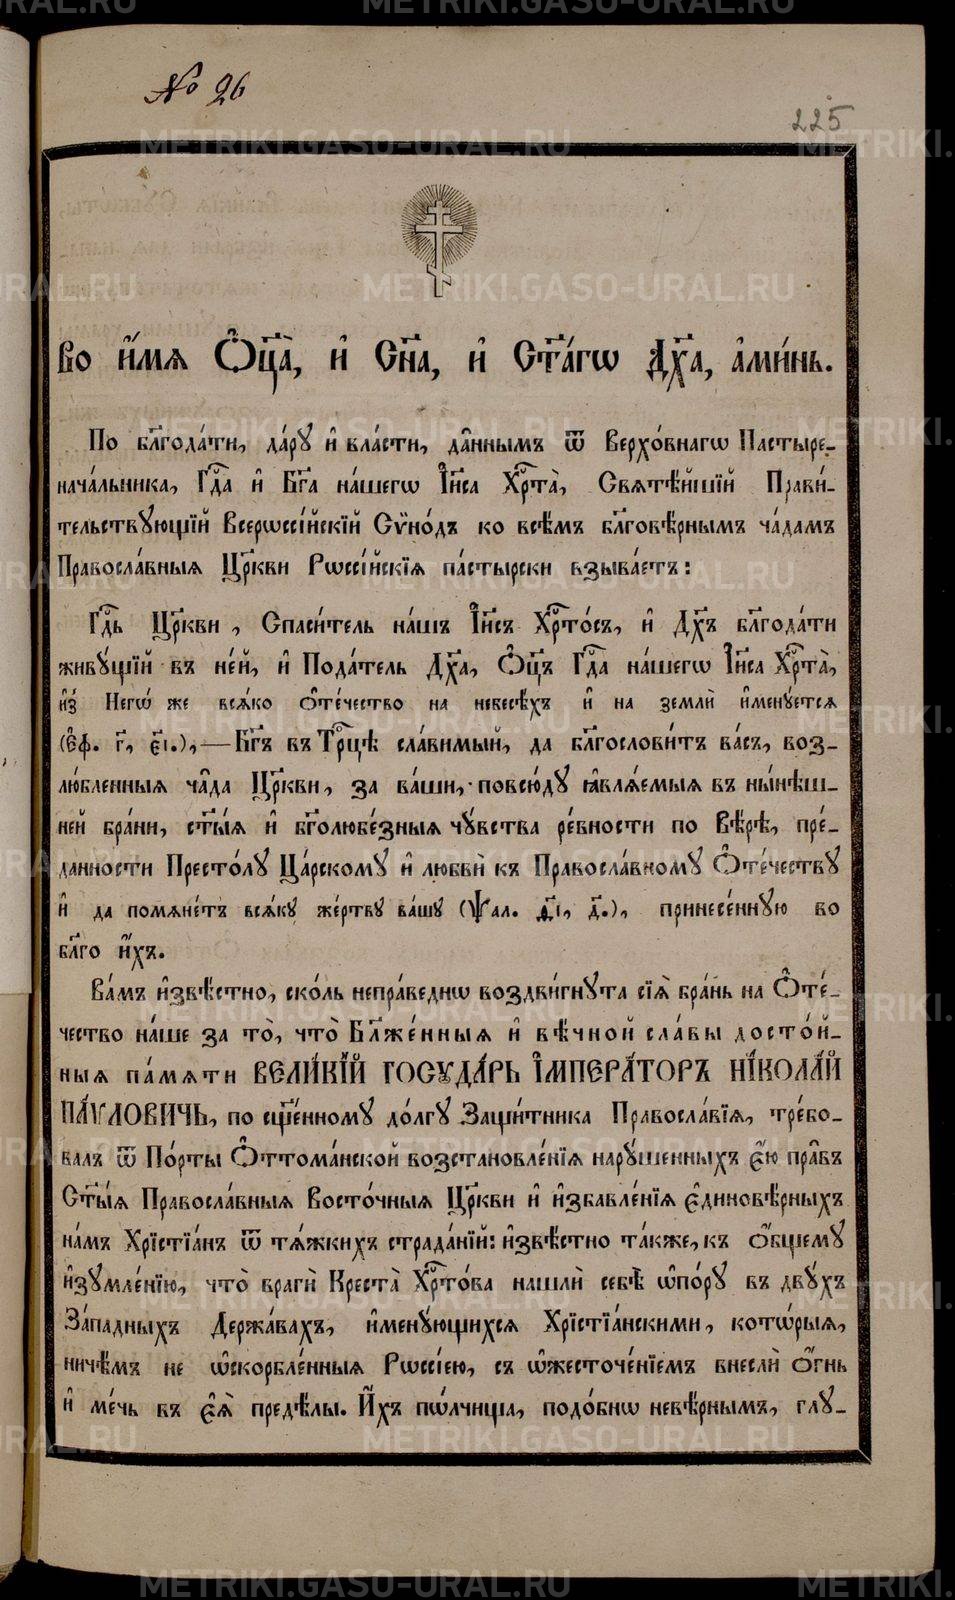 № 26
225
Во и҆́мѧ Ѻ҆ц҃а̀, и҆ Сн҃а, и҆ Ст҃а́гѡ Дх҃а, а҆ми́нь.
По бл҃года́ти, да́рꙋ и҆ вла́сти, да̑ннымъ ѿ Верхо́внагѡ Пастыре-
нача́льника, Гдⷭ҇а и҆ Бг҃а на́шегѡ І҆и҃са Хрⷭ҇та̀, Свѧтѣ́йшїй Прави́-
тельствꙋющїй Всерѡссі́йскїй Сѵ̈но́дъ ко всѣ̑мъ бл҃говѣ̑рнымъ ча́дамъ
Правосла́вныѧ Цр҃кви Рѡссі́йскїѧ па́стырски взыва́етъ:
Гдⷭ҇ь Цр҃кви, Спаси́тель на́шъ І҆и҃съ Хрⷭ҇то́съ, и҆ Дх҃ъ бл҃года́ти
живꙋ́щїй въ не́й, и҆ Пода́тель Дх҃а, Ѻ҆ц҃ъ Гдⷭ҇а на́шегѡ І҆и҃са Хрⷭ҇та̀,
и҆з̾ Негѡ́ же всѧ́ко ѻ҆те́чество на небесѣ́хъ и҆ на землѝ и҆менꙋ́етсѧ
(є҆ф. г҃, є҃і.),—Бг҃ъ въ Трⷪ҇цѣ сла́вимый, да бл҃гослови́тъ ва́съ, воз-
лю́бленныѧ ча̑да Цр҃кви, за ва́ши, повсю́дꙋ ꙗ҆влѧ́емыѧ въ ны́нѣш-
ней бра́ни, ст҃ы́ѧ и҆ бг҃олюбе́зныѧ чꙋ́вства ре́вности по Вѣ́рѣ, пре́-
данности Престо́лꙋ Ца́рскомꙋ и҆ любвѝ къ Правосла́вномꙋ Ѻ҆те́чествꙋ
и҆ да помѧне́тъ всѧ́кꙋ же́ртвꙋ ва́шꙋ (Ѱал. д҃і, д҃.), принесе́ннꙋю во
бл҃го и҆́хъ.
Ва́мъ и҆звѣ́стно, ско́ль непра́веднѡ воздви́гнꙋта сїѧ̀ бра́нь на Ѻ҆те́-
чество на́ше за то̀, что̀ Бл҃же́нныѧ и҆ вѣ́чной сла́вы досто́й-
ныѧ па́мѧти ВЕЛИ́КЇЙ ГОСꙊДА́РЬ І҆МПЕРА́ТОРЪ НІКОЛА́Й
ПА́ѴЛОВИЧЬ, по сщ҃е́нномꙋ до́лгꙋ Защи́тника Правосла́вїѧ, тре́бо-
валъ ѿ По́рты Ѻ҆ттома́нской возстановле́нїѧ нарꙋ́шенныхъ є҆́ю пра̑въ
Ст҃ы́ѧ Правосла́вныѧ Восто́чныѧ Цр҃кви и҆ и҆збавле́нїѧ є҆динове́рныхъ
на́мъ Хрїстїа́нъ ѿ тѧ́жкихъ страда́нїй: и҆звѣ́стно та́кже, къ ѻ҆́бщемꙋ
и҆зꙋмле́нїю, что̀ врагѝ Креста̀ Хрⷭ҇то́ва нашлѝ себѣ̀ ѡ҆по́рꙋ въ двꙋ́хъ
За́падныхъ Держа́вахъ, и҆менꙋ́ющихсѧ Хрїстїа́нскими, кото́рыѧ,
ничѣ́мъ не ѡ҆скорбле́нныѧ Рѡссі́ею, съ ѡ҆жесточе́нїемъ внеслѝ ѻ҆́гнь
и҆ ме́чь въ є҆ѧ̀ предѣ́лы. И҆́хъ пѡ́лчища, подо́бнѡ невѣ̑рнымъ, глꙋ-
METRIKI.GASO-URAL.RU